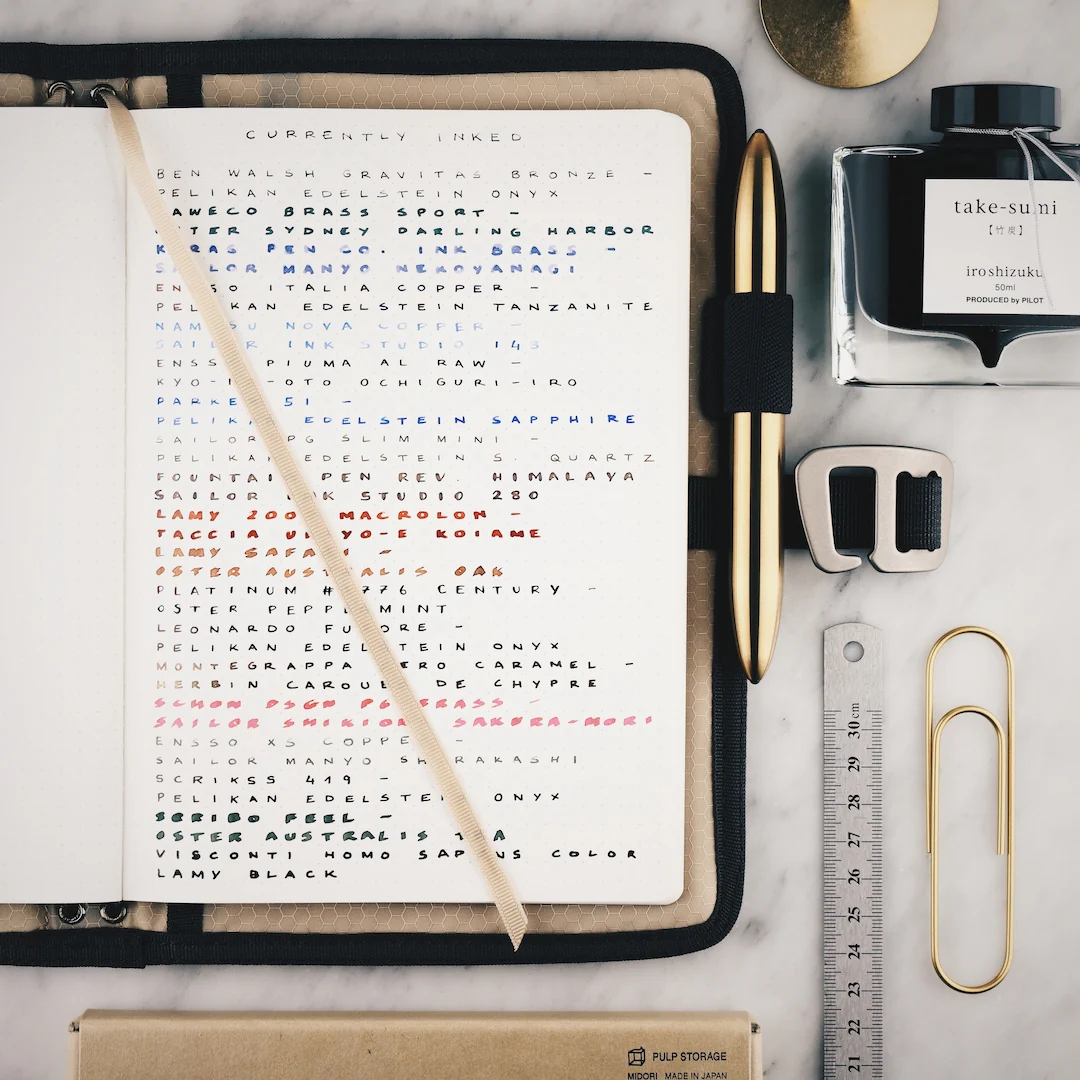 CURRENTLY INKED
BEN WALSH GRAVITAS BRONZE –
PELIKAN EDELSTEIN ONYX
AWECO BRASS SPORT –
STER SYDNEY DARLING HARBOR
K RAS PEN CO. INK BRASS –
S ILOR MANYO NEKOYANAGI
EN SO ITALIA COPPER –
PEL KAN EDELSTEIN TANZANITE
NAM SU NOVA COPPER –
SAI R INK STUDIO 143
ENSS PIUMA AL RAW –
KYO-I -OTO OCHIGURI-IRO
PARKE 51 –
PELIKA EDELSTEIN SAPPHIRE
SAILOR PG SLIM MINI –
PELIKAN EDELSTEIN S. QUARTZ
FOUNTAI PEN REV. HIMALAYA
SAILOR NK STUDIO 280
LAMY 200 MACROLON –
TACCIA U YO-E KOIAME
LAMY SAFARI –
OSTER AUSTRALIS OAK
PLATINUM # 776 CENTURY –
OSTER PEPPE MINT
LEONARDO FU ORE –
PELIKAN EDELSTEIN ONYX
MONTEGRAPPA ERO CARAMEL –
HERBIN CAROU DE CHYPRE
SCHON DSGN PG BRASS –
SAILOR SHIKIOR SAKURA-MORI
ENSSO XS COPPE –
SAILOR MANYO SH RAKASHI
SCRIKSS 419 –
PELIKAN EDELSTEI ONYX
SCRIBO FEEL –
OSTER AUSTRALIS T A
VISCONTI HOMO SAP NS COLOR
LAMY BLACK
take-sumi
【竹炭】
iroshizuku
50ml
PRODUCED by PILOT
30 cm
29
28
27
26
25
24
23
22
21
PULP STORAGE
MIDORI MADE IN JAPAN